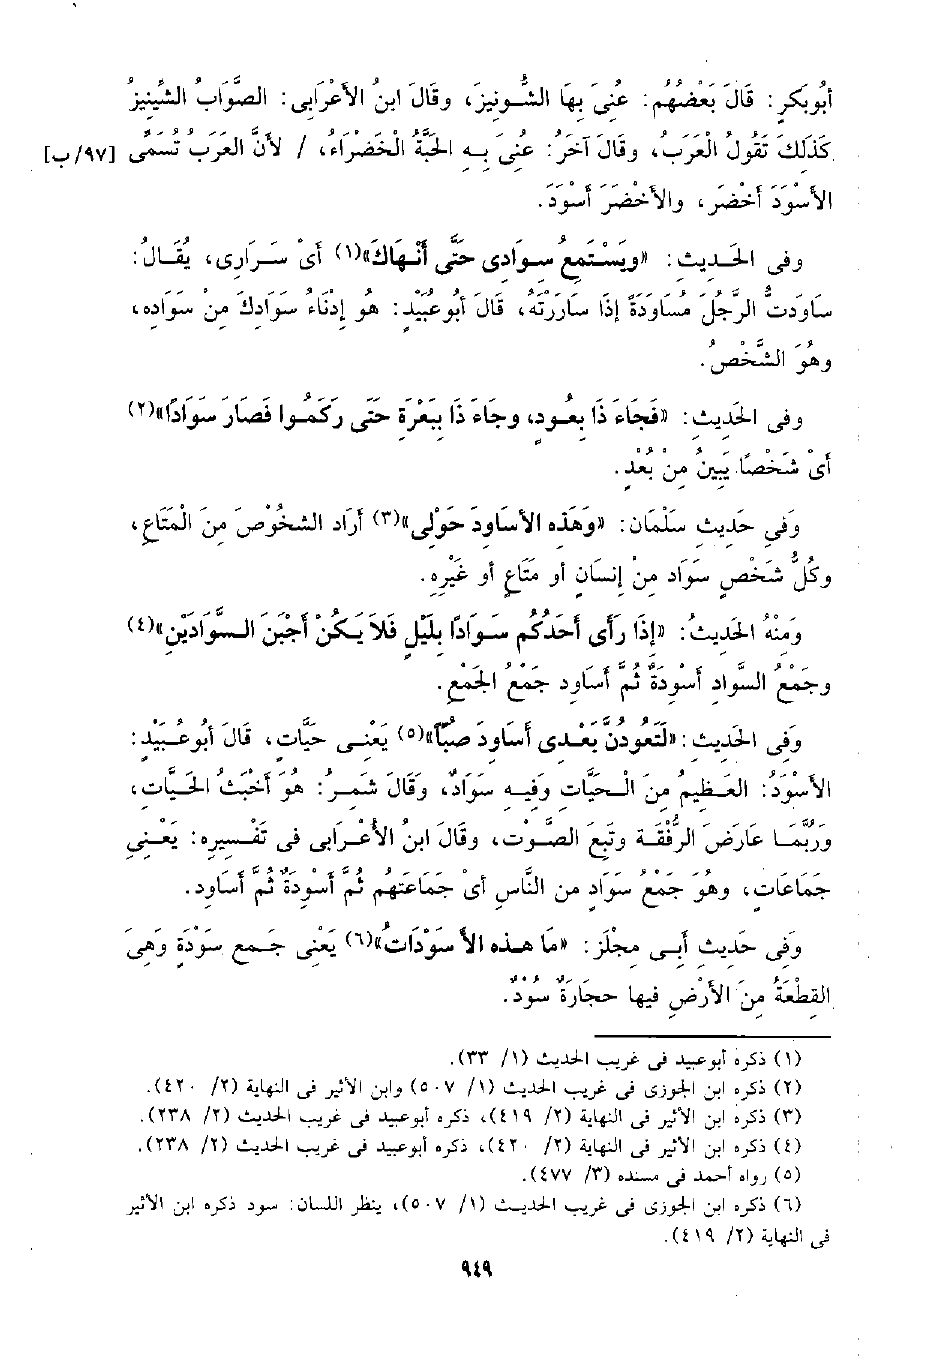 أبُوبَكرٍ: قَالَ بَعْضُهُم: عُنىَ بِهَا الشُّونيزَ، وقَالَ ابنُ الأعْرَابى: الصَّوَابُ الشِّينيزُ
كَذَلكَ تَقُولُ الْعَرَبُ، وقَالَ آخَرُ: عنُىَ بِه الحَبَّةُ الْخَضْرَاءُ، / لأنَّ العَرَبَ تُسمَّى [٩٧/ب]
الأسْوَدَ أخْضَر، والأخْضَرَ أسْوَدَ.
وفى الحَديث: «ويَسْتَمِع سِوَادى حَتَّى أنْهَاكَ»(١) أىْ سَرَارى، يُقَالُ:
سَاوَدتُّ الرَّجُلَ مُسَاوَدَةً إذَا سَارَرْتَهُ، قَالَ أبُوعُبَيْد: هُو إدْنَاءُ سَوَادكَ منْ سَوَاده،
وهُوَ الشَّخْصُ.
وفى الحَديث: «فَجَاءَ ذَا بِعُود، وجَاءَ ذَا بَبَعْرَة حَتَى رَكَمُوا فَصَارَ سَوَادًا»(٢)
أىْ شَخْصًا يَبِينُ مِنْ بُعْدٍ.
وَفِى حَديث سَلْمَان: «وَهَذه الأسَاودَ حَوْلى»(٣) أرَادَ الشخُوْصَ مِنَ الْمَتَاعِ،
وكُلُّ شَخْصٍ سَوَاد مِنْ إنسَانٍ أو مَتَاعٍ أو غَيْرِه.
وَمنْهُ الحَديثُ: «إذَا رَأى أحَدُكُم سَوَادًا بلَيْلٍ فَلاَ يَكُنْ أجْبَنَ السوَادَيْنِ»(٤)
وجَمْعُ السَّوَاد أسْوِدَةٌ ثُمَّ أسَاودِ جَمْعُ الجَمْعِ.
وَفى الحَديث: «لَتَعُودُنَّ بَعْدى أسَاودَ صُبًّا»(٥) يَعْنى حَيَّات، قَالَ أبُوعُبَيد:
الأسْوَدُ: العَظيمُ منَ الْحيَّاتِ وفيه سَوَادٌ، وقَالَ شَمرُ: هُوَ أخْبَثُ الحَيَّاتِ،
وَرُبَّمَا عَارَضَ الرُّفْقَةَ وتَبِعَ الصَّوْتَ، وقَالَ ابنُ الأعْرَابى فى تَفْسيره: يَعْنى
جَمَاعَاتٍ، وهُوَ جَمْعُ سَوَادٍ من النَّاسِ أىْ جَمَاعَتهم ثُمَّ أسْودَةٌ ثُمَّ أسَاود.
وَفى حَديث أبِى مجْلَز: «مَا هَذه الأسَوْدَاتُ»(٦) يَعْنى جَمع سَوْدَة وَهىَ
القطْعَةُ منَ الأرْضِ فيها حجَارَةٌ سُوْدٌ.
(١) ذكره أبوعبيد فى غريب الحديث (١/ ٣٣).
(٢) ذكره ابن الجوزى فى غريب الحديث (١/ ٥٠٧) وابن الأثير فى النهاية (٢/ ٤٢٠).
(٣) ذكره ابن الأثير فى النهاية (٢/ ٤١٩)، ذكره أبوعبيد فى غريب الحديث (٢/ ٢٣٨).
(٤) ذكره ابن الأثير فى النهاية (٢/ ٤٢٠)، ذكره أبوعبيد فى غريب الحديث (٢/ ٢٣٨).
(٥) رواه أحمد فى مسنده (٣/ ٤٧٧).
(٦) ذكره ابن الجوزى فى غريب الحديث (١/ ٥٠٧)، ينظر اللسان: سود ذكره ابن الأثير
فى النهاية (٢/ ٤١٩).
٩٤٩